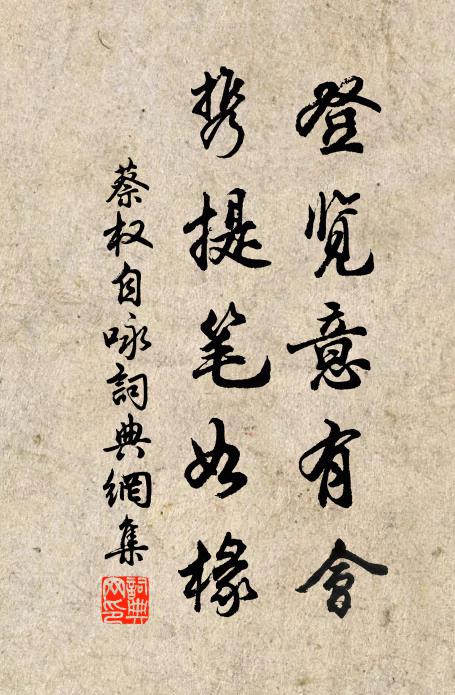 登览意有會
携提笔如椽
蔡权自咏詞典網集
詞典網印